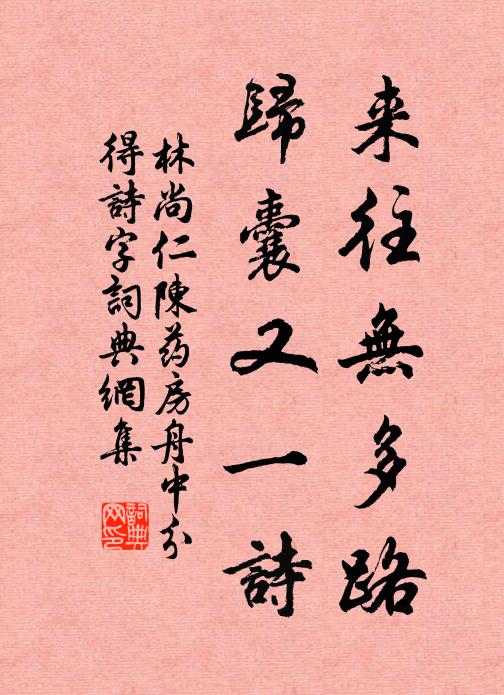 来往無多路
歸囊又一詩
林尚仁陳药房舟中分
得詩字詞典網集
詞典
网印